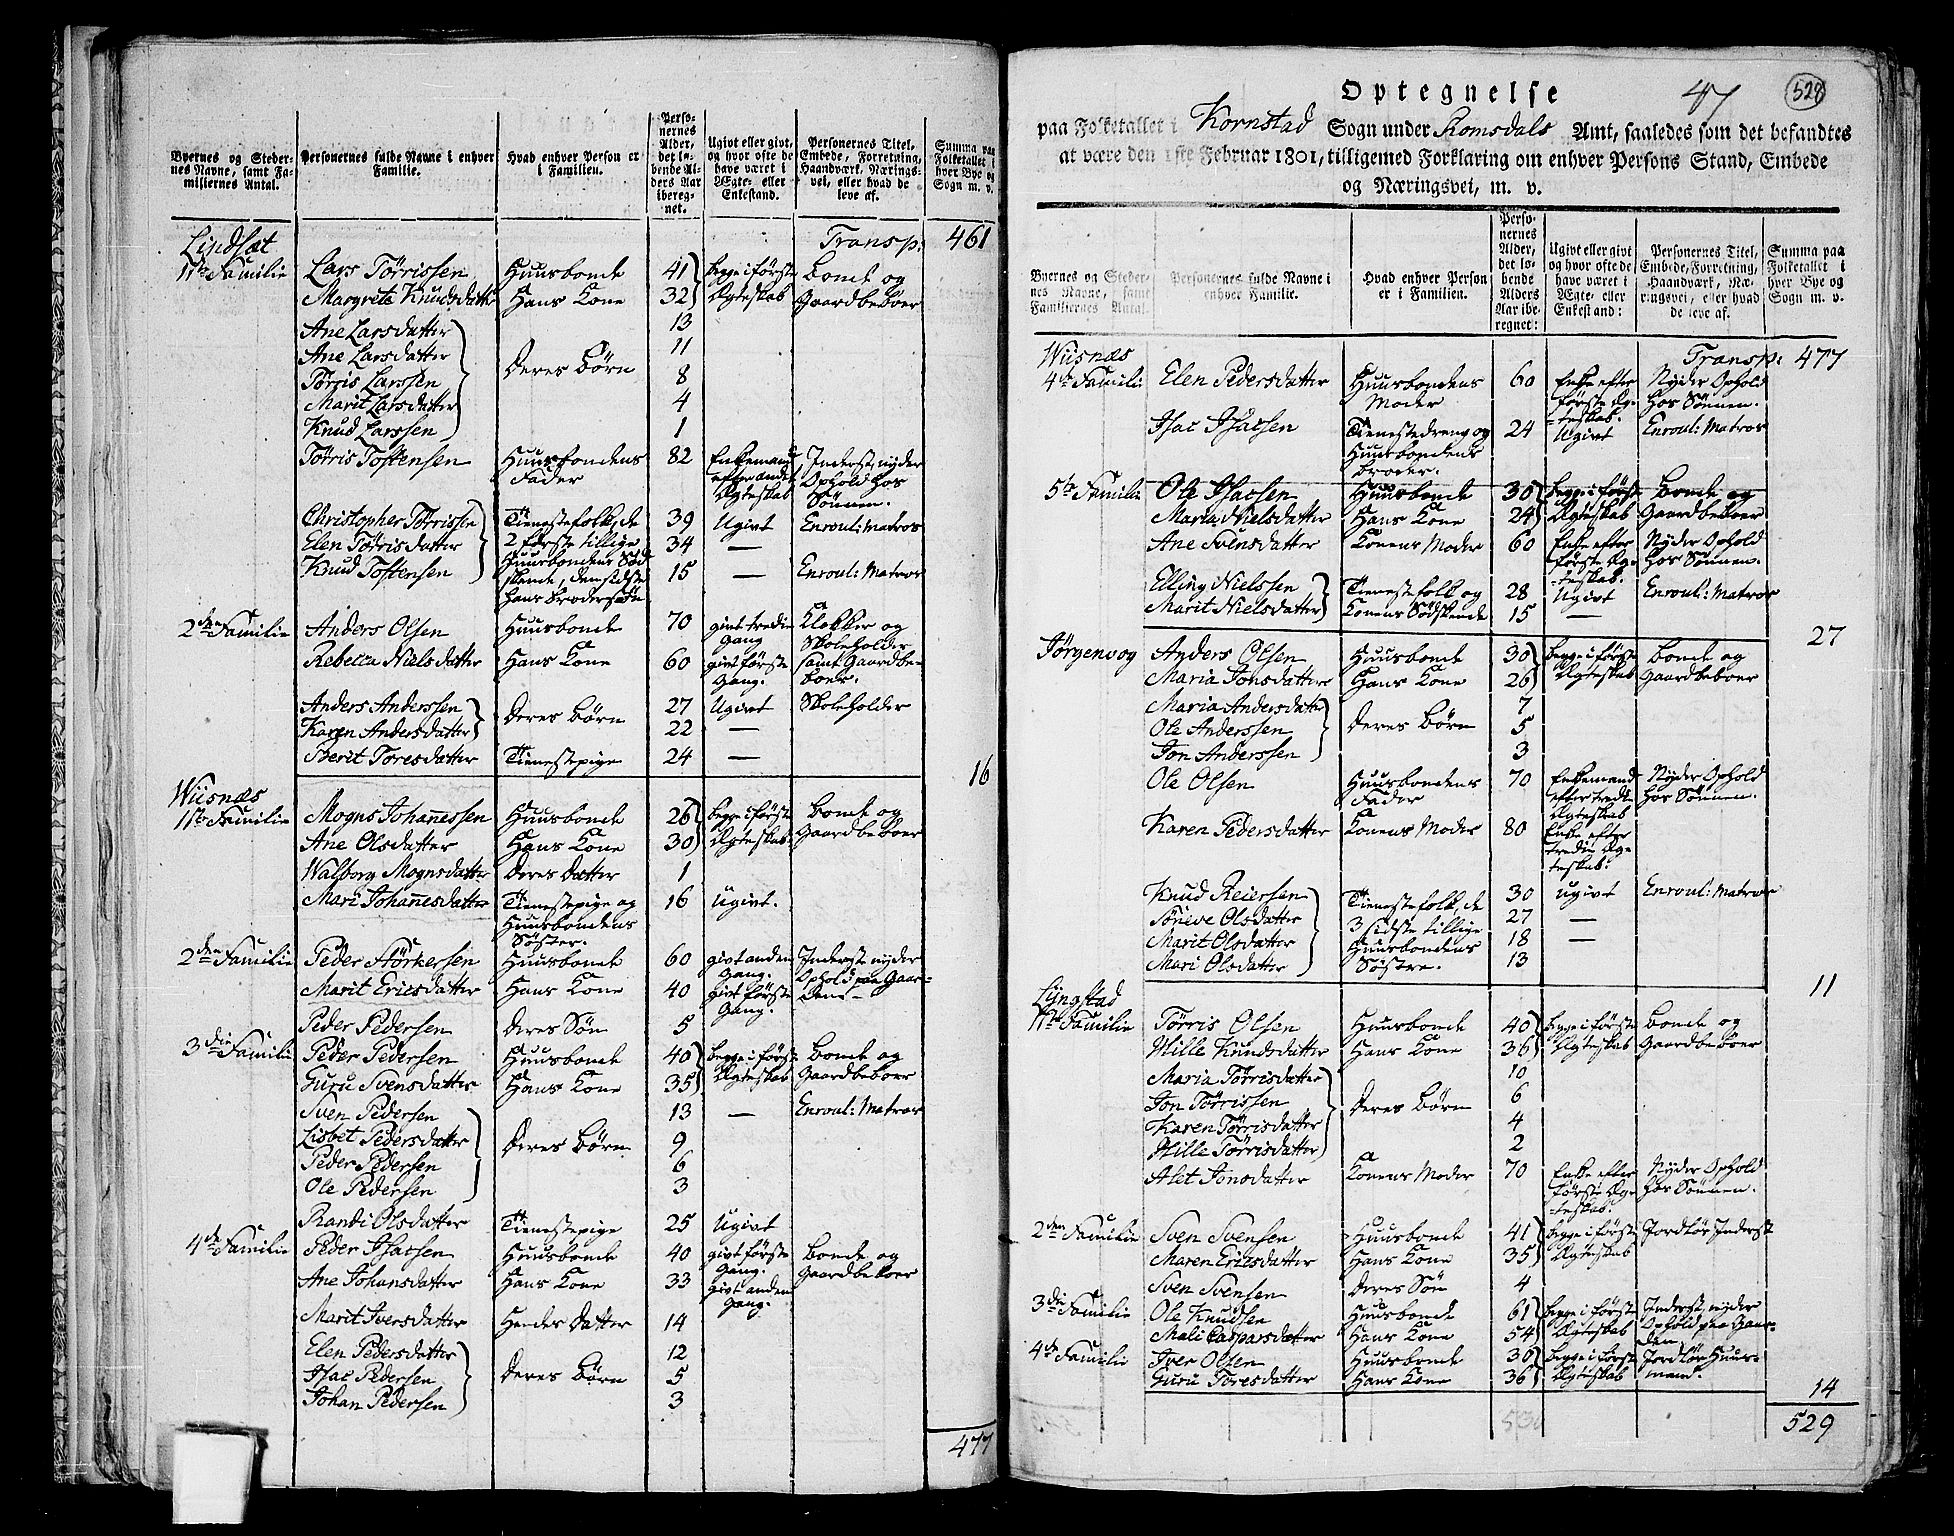 Byernes og Steder- nes Navne, samt Fa- miliernes Antal. | Personernes fulde Navne i enhver Familie. | Hvad enhver Person er i Familien. | Perso- nernes Alder, det lø- bende Al- ders Aar ibereg- net. | Ugivt eller givt, og hvor ofte de have været i Ægte- eller Enkestand. | Personernes Titel, Embede, Forretning, Haandværk, Nærings- vei, eller hvad de leve af. | Summa paa Folketallet i hver Bye og Sogn m. v.
Lindsæt | Transp: 461
1ste Familie | Lars Tørrissen | Huusbonde | 41 | begge i første | Bonde og
Margrete Knudsdatter | Hans Kone | 32 | Ægteskab | Gaardbeboer
Ane Larsdatter | 13
Ane Larsdatter | Deres Børn | 11
Tørris Larssen | 8
Marit Larsdatter | 4
Knud Larssen | 1
Tørris Tostensen | Huusbondens Fader | 82 | Enkemand efter andet Ægteskab | Inderst, nyder Ophold hos Sønnen.
Christopher Tørrissen | Tienestefolk, de | 39 | Ugivt | Enroul: Matros
Elen Tørrisdatter | 2 første tillige | 34 | —
Knud Tostensen | Huusbondens Sødskende, den sidste hans Brodersøn | 15 | — | Enroul: Matros
2den Familie | Anders Olsen | Huusbonde | 70 | givt tredie Gang | Klokker og Skoleholder
Rebecca Nielsdatter | Hans Kone | 60 | givt første Gang. | samt Gaardbeboer.
Anders Anderssen | Deres Børn | 27 | Ugivt | Skoleholder
Karen Andersdatter | 22 | —
Berit Toresdatter | Tienestepige | 24 | —
16
Wiisnæs
1ste Familie | Mogns Johannessen | Huusbonde | 26 | begge i første | Bonde og
Ane Olsdatter | Hans Kone | 30 | Ægteskab. | Gaardbeboer
Walborg Mognsdatter | Deres Datter | 1
Mari Johannesdatter | Tienestepige og Huusbondens Søster. | 16 | Ugivt.
2den Familie | Peder Størkersen | Huusbonde | 60 | givt anden Gang. | Inderst nyder
Marit Ericsdatter | Hans Kone | 40 | givt første Gang. | Ophold paa Gaarden.
Peder Pedersen | Deres Søn | 5
3die Familie | Peder Pedersen | Huusbonde | 40 | begge i første | Bonde og
Guru Svensdatter | Hans Kone | 35 | Ægteskab | Gaardbeboer
Sven Pedersen | 13 | — | Enroul: Matros
Lisbet Pedersdatter | Deres Børn | 9
Peder Pedersen | 6
Ole Pedersen | 3
Randi Olsdatter | Tienestepige | 25 | Ugivt
4de Familie | Peder Isacsen | Huusbonde | 40 | givt første Gang. | Bonde og
Ane Johansdatter | Hans Kone | 33 | givt anden Gang. | Gaardbeboer
Marit Iversdatter | Hendes Datter | 14
Elen Pedersdatter | 12
Isac Pedersen | Deres Børn | 5
Johan Pedersen | 3
477
Optegnelse
47
528
paa Folketallet i Kornstad Sogn under Romsdals Amt, saaledes som det befandtes
at være den 1ste Februar 1801, tilligemed Forklaring om enhver Persons Stand, Embede
og Næringsvei, m. v.
Byernes og Steder- nes Navne, samt Familiernes Antal. | Personernes fulde Navne i enhver Familie. | Hvad enhver Person er i Familien. | Perso- nernes Alder, det lø- bende Alders Aar ibe- regnet: | Ugivt eller givt og hvor ofte de have været i Ægte- eller Enkestand: | Personernes Titel, Embede, Forretning, Haandværk, Næ- ringsvei, eller hvad de leve af. | Summa paa Folketallet i hver Bye og Sogn m. v.
Wiisnæs | Transp: 477
4de Familie | Elen Pedersdatter | Huusbondens Moder | 60 | Enke efter første Ægteskab. | Nyder Ophold hos Sønnen.
Isac Isacsen | Tienestedreng og Huusbondens Broder. | 24 | Ugivt | Enroul: Matros
5te Familie | Ole Isacsen | Huusbonde | 30 | begge i første | Bonde og
Maria Nielsdatter | Hans Kone | 24 | Ægteskab | Gaardbeboer
Ane Svensdatter | Konens Moder | 60 | Enke efter første Ægteskab. | Nyder Ophold hos Sønnen.
Elling Nielssen | Tienestefolk og | 28 | Ugivt | Enroul: Matros
Marit Nielsdatter | Konens Sødskende | 15 | —
27
Jørgenvog | Anders Olsen | Huusbonde | 30 | begge i første | Bonde og
Maria Jonsdatter | Hans Kone | 26 | Ægteskab | Gaardbeboer
Maria Andersdatter | 7
Ole Anderssen | Deres Børn | 5
Jon Anderssen | 3
Ole Olsen | Huusbondens Fader | 70 | Enkemand efter tredie Ægteskab | Nyder Ophold hos Sønnen.
Karen Pedersdatter | Konens Moder | 80 | Enke efter tredie Ægteskab.
Knud Reiersen | Tienestefolk, de | 30 | Ugivt | Enroul: Matros
Søneve Olsdatter | 3 sidste tillige | 27 | —
Marit Olsdatter | Huusbondens | 18 | —
Mari Olsdatter | Søstre. | 13
11
Lyngstad
1ste Familie | Tørris Olsen | Huusbonde | 40 | begge i første | Bonde og
Mille Knudsdatter | Hans Kone | 36 | Ægteskab | Gaardbeboer
Maria Tørrisdatter | 10
Jon Tørrissen | Deres Børn | 6
Karen Tørrisdatter | 4
Mille Tørrisdatter | 2
Alet Jonsdatter | Konens Moder | 70 | Enke efter første Ægteskab. | Nyder Ophold hos Sønnen.
2den Familie | Sven Svensen | Huusbonde | 41 | begge i første | Jordløs Inderst
Maren Ericsdatter | Hans Kone | 35 | Ægteskab
Sven Svensen | Deres Søn | 4
3die Familie | Ole Knudsen | Huusbonde | 61 | begge i første | Inderst, nyder
Mali Caspersdatter | Hans Kone | 54 | Ægteskab | Ophold paa Gaarden
4de Familie | Iver Olsen | Huusbonde | 30 | begge i første | Jordløs Huus-
Guru Toresdatter | Hans Kone | 36 | Ægteskab | mand.
14
529